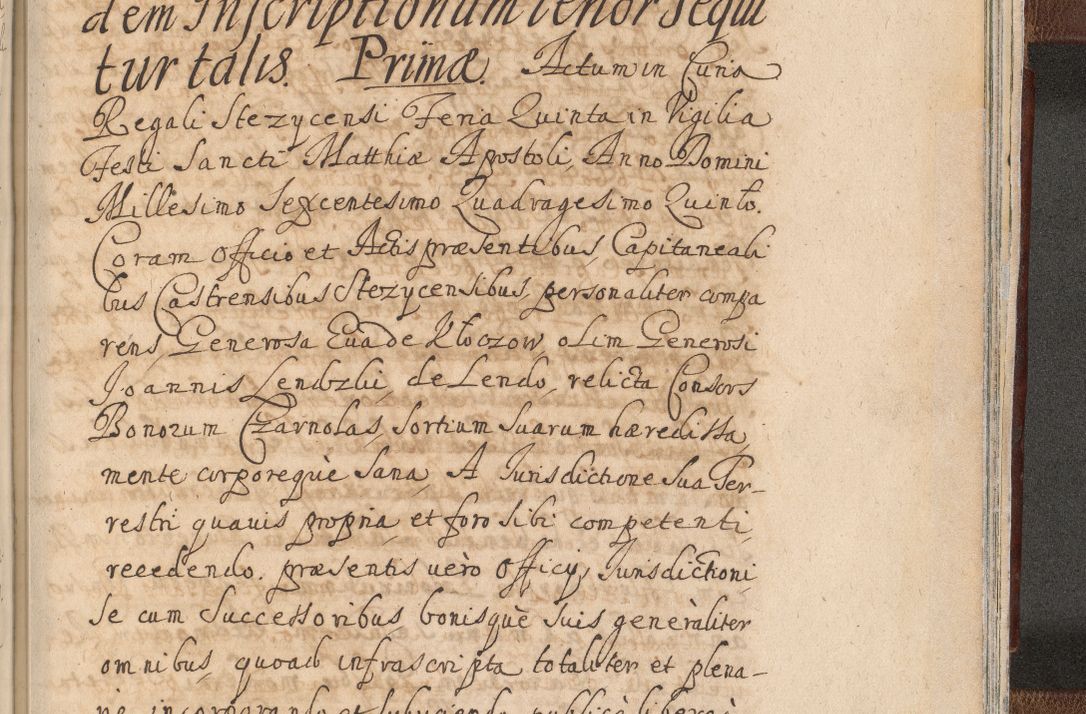 dem Inscriptionum tenor sequi
tur talis. Primæ. Actum in Curia
Regali Stezycensi Feria Quinta in Vigilia
Festi Sancti Matthiæ Apostoli, Anno Domini
Millesimo Sexcentesimo Quadragesimo Quinto.
Coram Officio et Actis præsentibus Capitaneali
bus Castrensibus Stezycensibus, personaliter compa
rens Generosa Eua de Kłoczow, olim Generosi
Joannis Lendzki, de Lendo, relicta Consors
Bonorum Czarnolas, sortium suarum hæredissa,
mente corporequè sana, A Jurisdictione sua Ter-
restri quauis propria et foro sibi competenti,
recedendo. præsentis uerò Officy, Jurisdictioni
se cum successoribus bonisquè suis generàliter
omnibus, quoad infrascripta totaliter et plena-
riè incorporando et subyciendo, publicè liberè